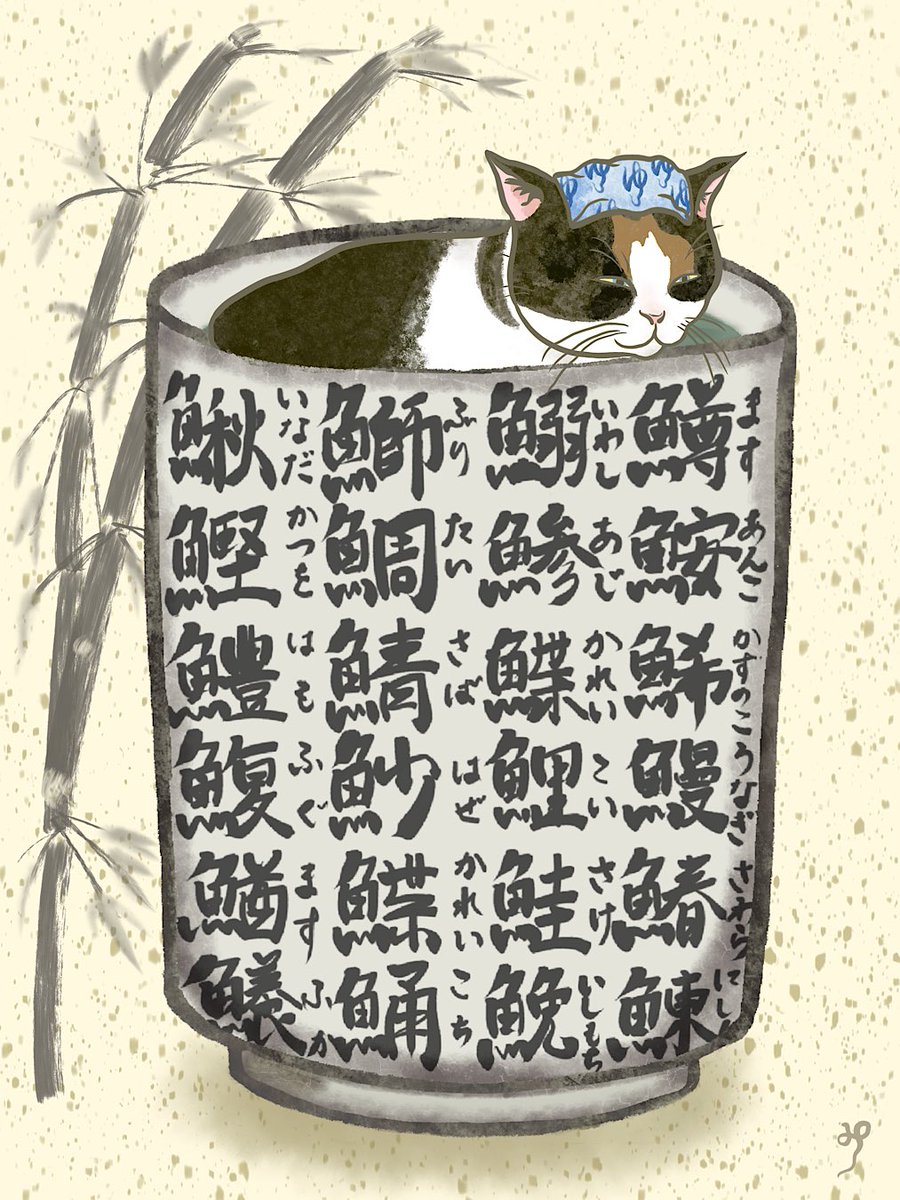 ゆ ゆ ゆ ゆ ゆ
鱒 ます
鮟 あんこ
鯑 かずのこ
鰻 うなぎ
鰆 さわら
鰊 にしん
鰯 いわし
鯵 あじ
鰈 かれい
鯉 こい
鮭 さけ
鮸 いしもち
鰤 ふり
鯛 たい
鯖 さば
魦 はぜ
鰈 かれい
鯒 こち
鰍 いなだ
鰹 かつを
鱧 はも
鰒 ふぐ
鰌 ます
鱶 ふか